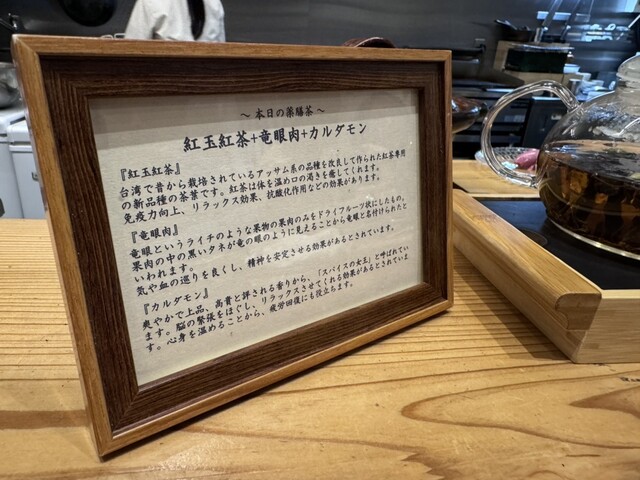 ～ 本日の薬膳茶 ～
紅玉紅茶+竜眼肉+カルダモン
『紅玉紅茶』
台湾で昔から栽培されているアッサム系の品種を改良して作られた紅茶専用
の新品種の茶葉です。紅茶は体を温め口の渇きを癒してくれます。
免疫力向上、リラックス効果、抗酸化作用などの効果があります。
『竜眼肉』
竜眼というライチのような果物の果肉のみをドライフルーツ状にしたもの。
果肉の中の黒いタネが竜の眼のように見えることから竜眼と名付けられたと
いわれます。
気や血の巡りを良くし、精神を安定させる効果があるとされています。
『カルダモン』
爽やかで上品、高貴と評される香りから、「スパイスの女王」と呼ばれてい
ます。脳の緊張をほぐし、リラックスさせてくれる効果があるとされていま
す。心身を温めることから、疲労回復にも役立ちます。